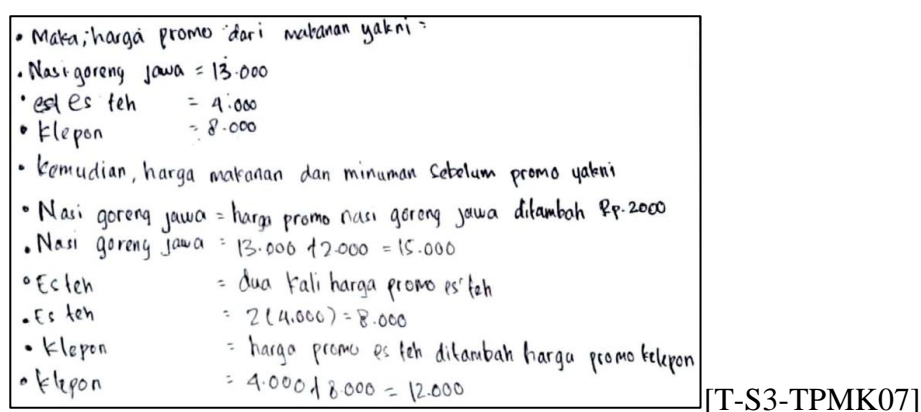 • Maka, harga promo dari makanan yakni =
• Nasi goreng jawa = 13.000
• es teh = 4.000
• klepon = 8.000
• kemudian, harga makanan dan minuman sebelum promo yakni
• Nasi goreng jawa = harga promo nasi goreng jawa ditambah Rp.2000
• Nasi goreng jawa = 13.000 + 2.000 = 15.000
• Es teh = dua kali harga promo es teh
• Es teh = 2(4.000) = 8.000
• klepon = harga promo es teh ditambah harga promo kelepon
• klepon = 4.000 + 8.000 = 12.000
[T-S3-TPMK07]